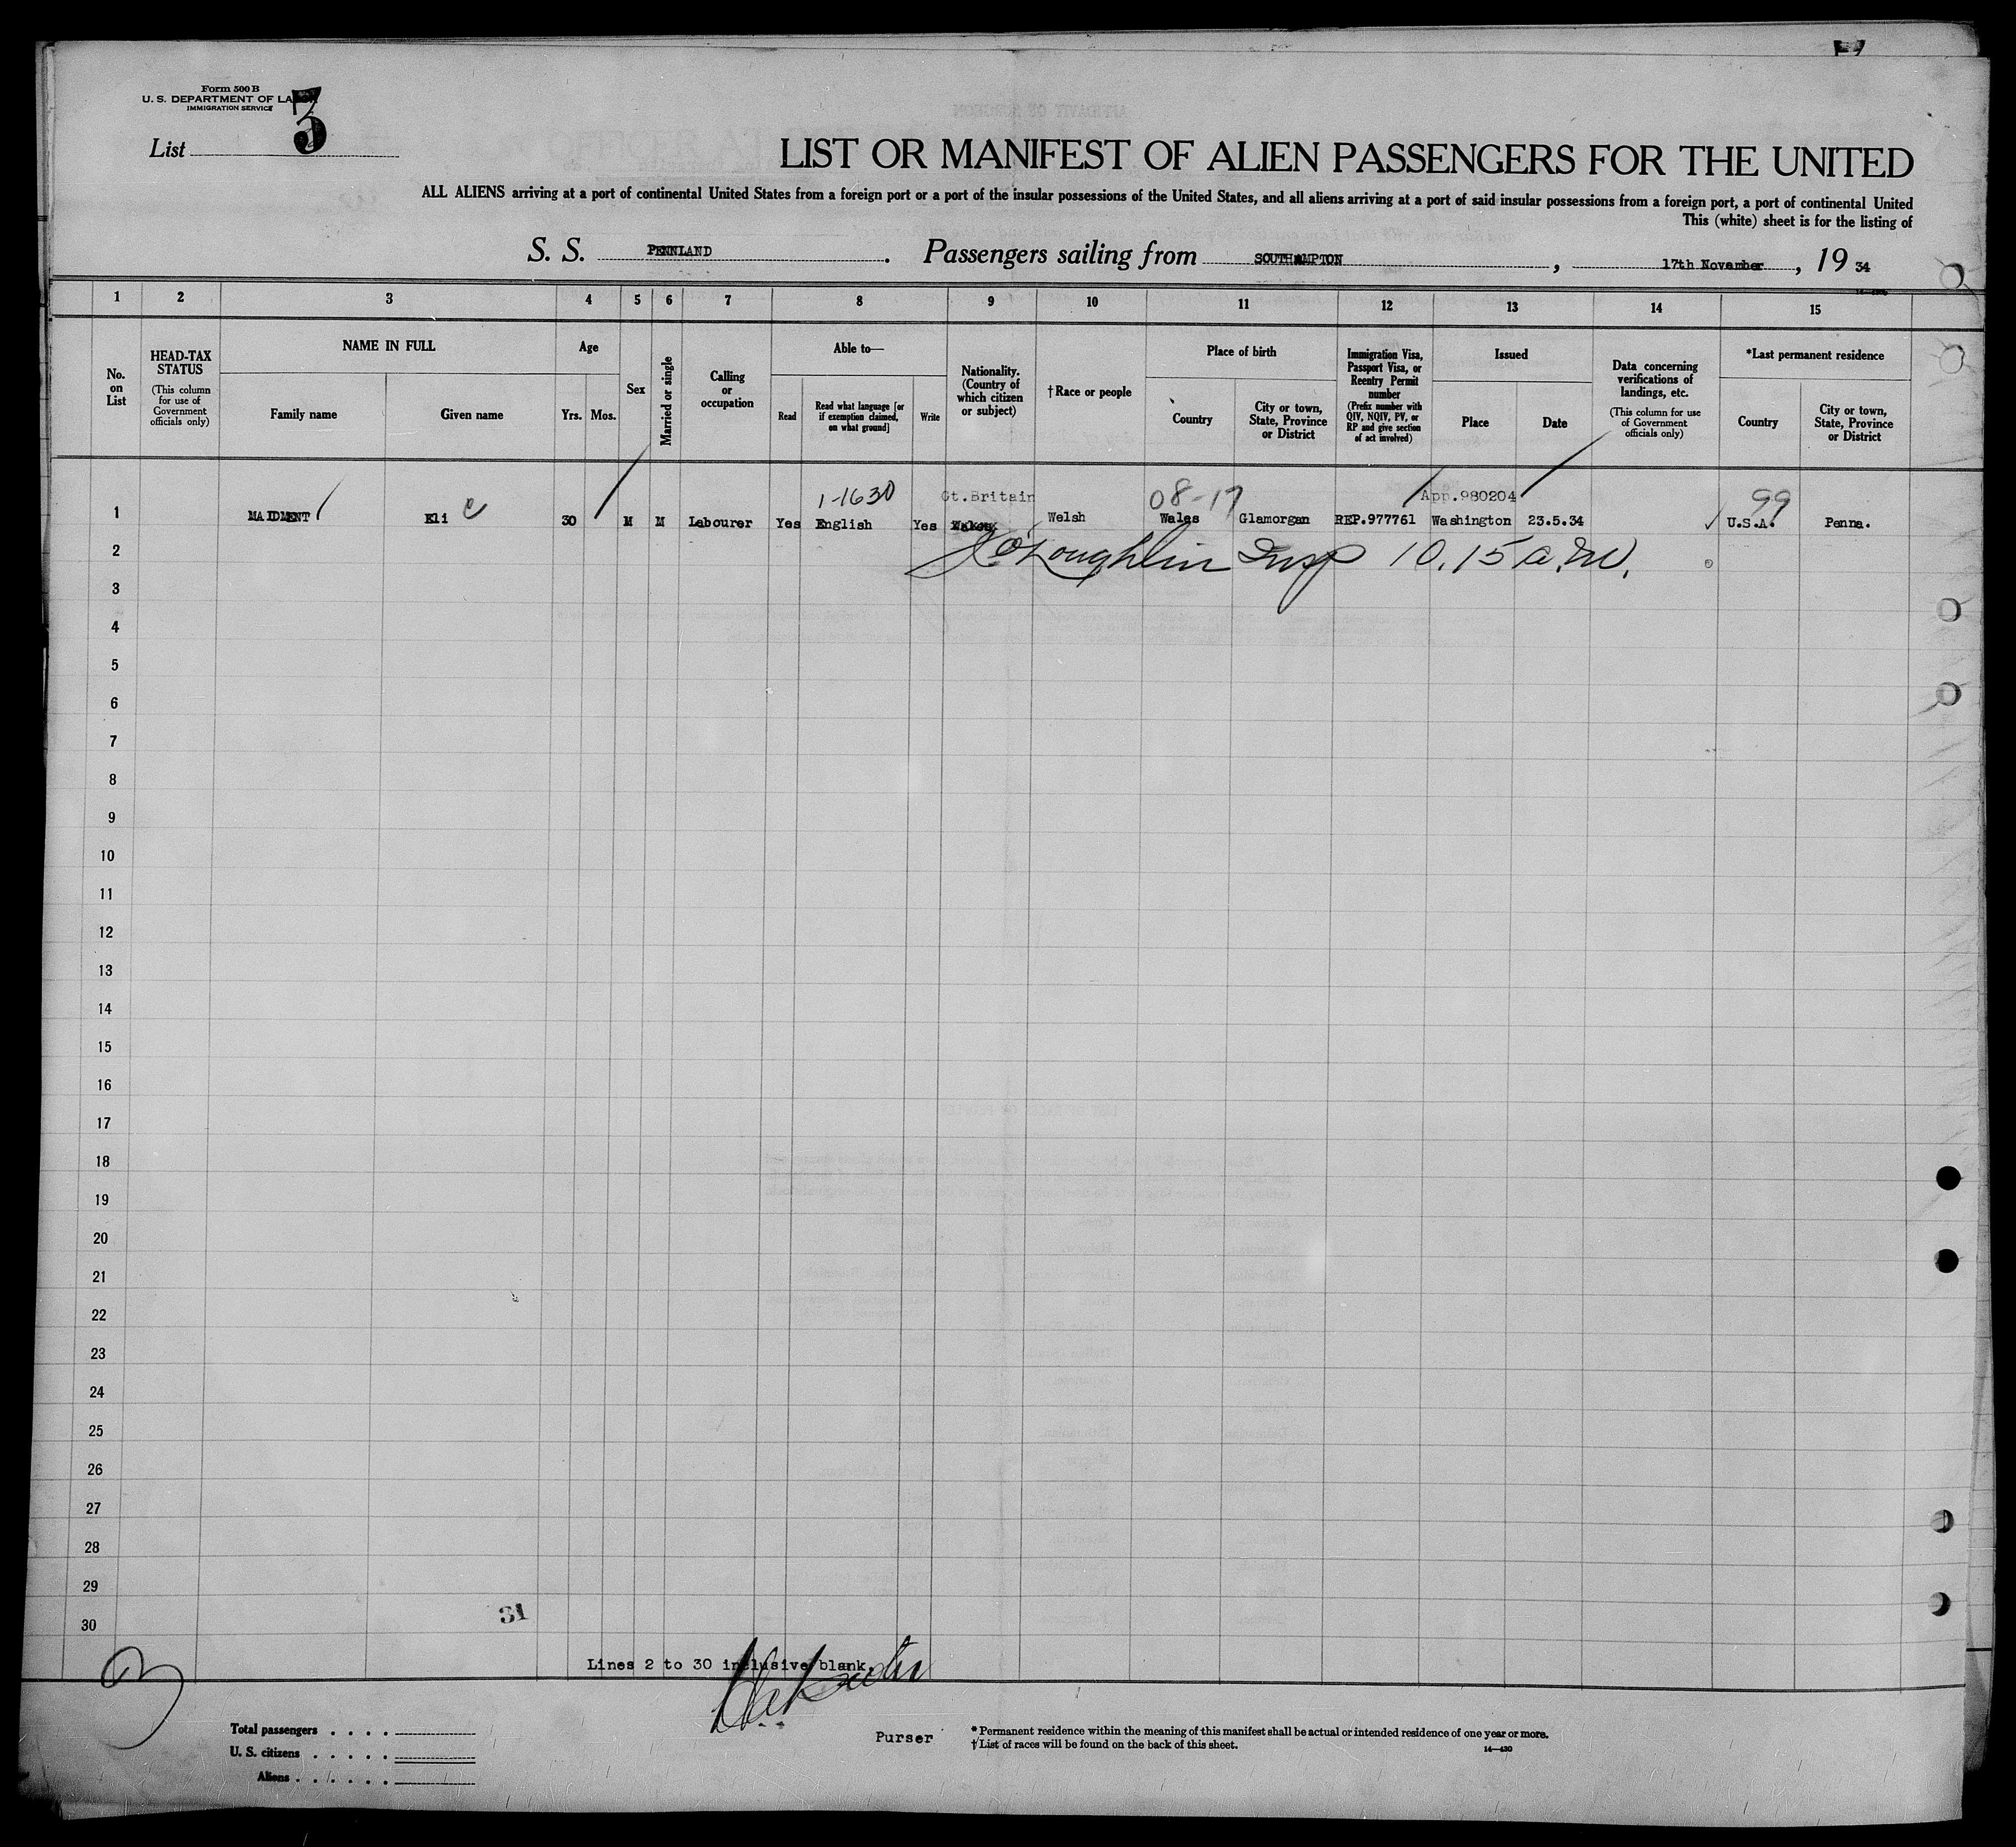 Form 500 B
U. S. DEPARTMENT OF LABOR
IMMIGRATION SERVICE
List 3
LIST OR MANIFEST OF ALIEN PASSENGERS FOR THE UNITED
ALL ALIENS arriving at a port of continental United States from a foreign port or a port of the insular possessions of the United States, and all aliens arriving at a port of said insular possessions from a foreign port, a port of continental United
This (white) sheet is for the listing of
S. S. PENNLAND . Passengers sailing from SOUTHAMPTON , 17th November , 19 34
1 2 3 4 5 6 7 8 9 10 11 12 13 14 15
No. on List
HEAD-TAX STATUS
(This column for use of Government officials only)
NAME IN FULL
Family name
Given name
Age
Yrs. Mos.
Sex
Married or single
Calling or occupation
Able to—
Read
Read what language [or if exemption claimed, on what ground]
Write
Nationality. (Country of which citizen or subject)
† Race or people
Place of birth
Country
City or town, State, Province or District
Immigration Visa, Passport Visa, or Reentry Permit number
(Prefix number with QIV, NQIV, PV, or RP and give section of act involved)
Issued
Place
Date
Data concerning verifications of landings, etc.
(This column for use of Government officials only)
*Last permanent residence
Country
City or town, State, Province or District
1-1630 Gt.Britain 08-17 App.980204 99
1 MAIDMENT Eli 30 M M Labourer Yes English Yes Welsh Wales Glamorgan REP.977761 Washington 23.5.34 ✓ U.S.A. Penna.
2 O'Loughlin Insp 10.15 a.m.
3
4
5
6
7
8
9
10
11
12
13
14
15
16
17
18
19
20
21
22
23
24
25
26
27
28
29
30
31
Lines 2 to 30 inclusive blank.
Total passengers . . . .
U. S. citizens . . . . .
Aliens . . . . . .
Purser
* Permanent residence within the meaning of this manifest shall be actual or intended residence of one year or more.
† List of races will be found on the back of this sheet.
14—430